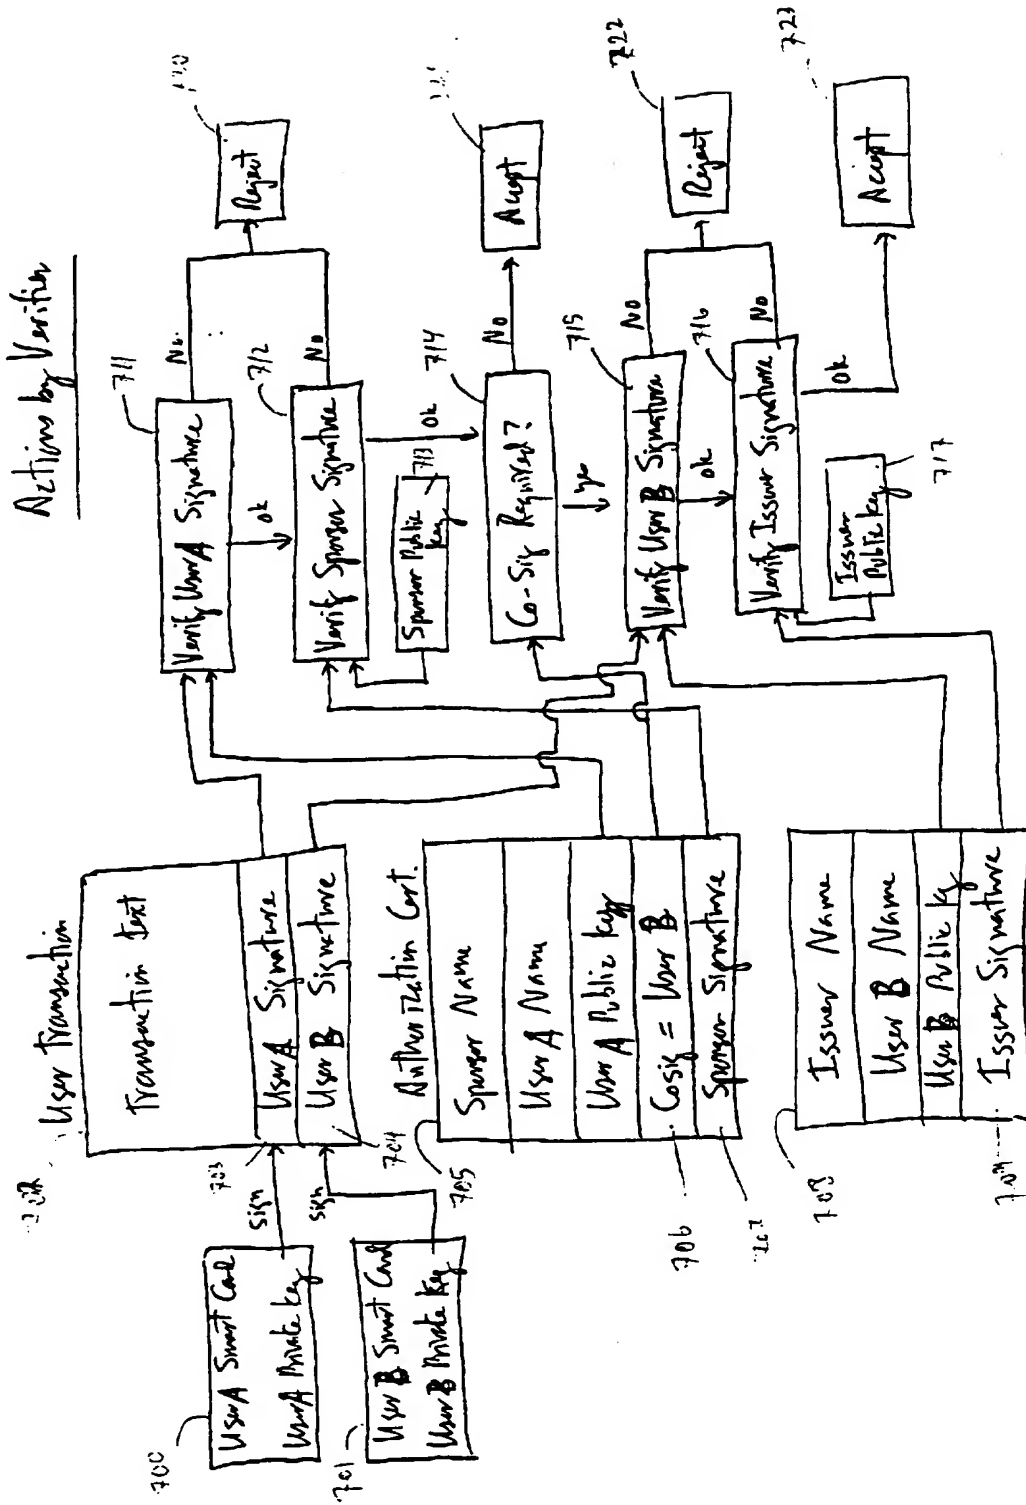 Actions by Verifier
700
User A Smart Card
User A Private Key
701
User B Smart Card
User B Private Key
sign
sign
User Transaction
Transaction Text
703
User A Signature
704
User B Signature
705
Authorization Cert.
Sponsor Name
User A Name
User A Public Key
706
Cosig = User B
Sponsor Signature
708
Issuer Name
User B Name
User B Public Key
709
Issuer Signature
711
Verify User A Signature
No
ok
712
Verify Sponsor Signature
No
ok
713
Sponsor Public
Key
714
Co-Sig Required?
No
yes
715
Verify User B Signature
No
ok
716
Verify Issuer Signature
No
ok
717
Issuer
Public Key
Reject
Accept
722
Reject
723
Accept